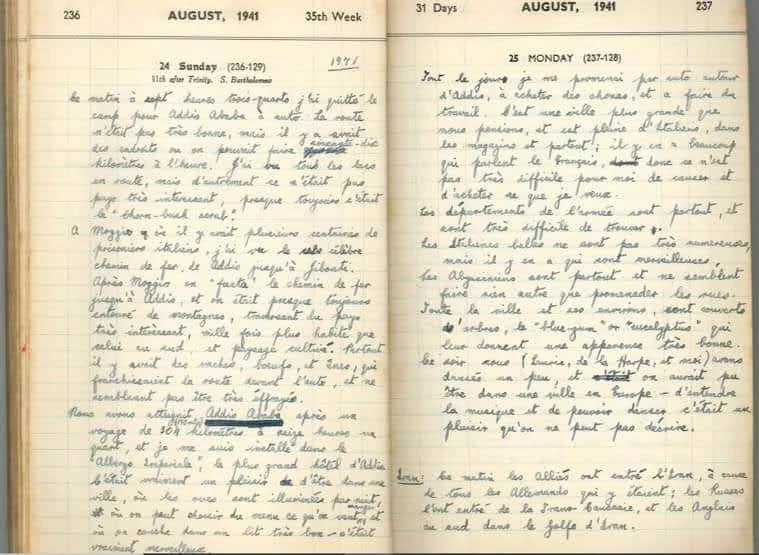 236 AUGUST, 1941 35th Week
24 Sunday (236-129) 1971
11th after Trinity. S. Bartholomew
Ce matin à sept heures trois-quarts j'ai quitté le
camp pour Addis Ababa à auto. La route
n'était pas très bonne, mais il y avait
des endroits ou on pouvait faire soixante-dix
kilomètres à l'heure. J'ai vu tous les lacs
en route, mais d'autrement ce n'était pas
pays très interessent, presque toujours c'était
le "thorn-bush scrub".
A Moggio, où il y avait plusieurs centaines de
prisoniers italiens, j'ai vu le célèbre
chemin de fer, de Addis jusqu'à Jibouti.
Après Moggio on "facta" le chemin de fer
jusqu'à Addis, et on était presque toujours
entouré de montagnes, traversant du pays
très intéresent, mille fois plus habité que
celui au sud, et paysage cultivé. Partout
il y avait des vaches, boeufs, et ânes, qui
franchissaient la route devant l'auto, et ne
semblaient pas être très effrayés.
Nous avons atteignit Addis Ababa après un
voyage de 304 kilomètres à seize heures un
quart, et je me suis installé dans le
"Albergo Imperiale", le plus grand hôtel d'Addis
C'était vraiment un plaisir d'être dans une
ville, où les rues sont illuminées par nuit,
et où on peut choisir du menu ce qu'on veut manger, et
où on couche dans un lit très bon - c'était
vraiment merveilleux.
31 Days AUGUST, 1941 237
25 MONDAY (237-128)
Tout le jour je me promenai par auto autour
d'Addis, à acheter des choses, et à faire du
travail. C'est une ville plus grande que
nous pensions, et est pleine d'Italiens, dans
les magazins et partout; il y en a beaucoup
qui parlent le français, donc ce n'est
pas très difficile pour moi de causer et
d'acheter ce que je veux.
Les départements de l'armée sont partout, et
sont très difficile de trouver.
Les Italiennes belles ne sont pas très numereuses,
mais il y en a qui sont merveilleuses,
Les Abyssiniens sont partout et ne semblent
faire rien autre que promeneder les rues.
Toute la ville et ses environs, sont couverts
d'arbres, le "blue-gum" or "eucalyptus" qui
leur donnent une apparence très bonne.
Ce soir nous (Currie, de la Harpe, et moi) avons
dansés un peu, et on aurait pu
être dans une ville en Europe - d'entendre
la musique et de pouvoir danser c'était un
plaisir qu'on ne peut pas décrire.
Iran: Ce matin les Alliés ont entré l'Iran, à cause
de tous les Allemands qui y étaient; les Russes
l'ont entré de la Trans-Caucasie, et les Anglais
au sud dans le Golfe d'Iran.